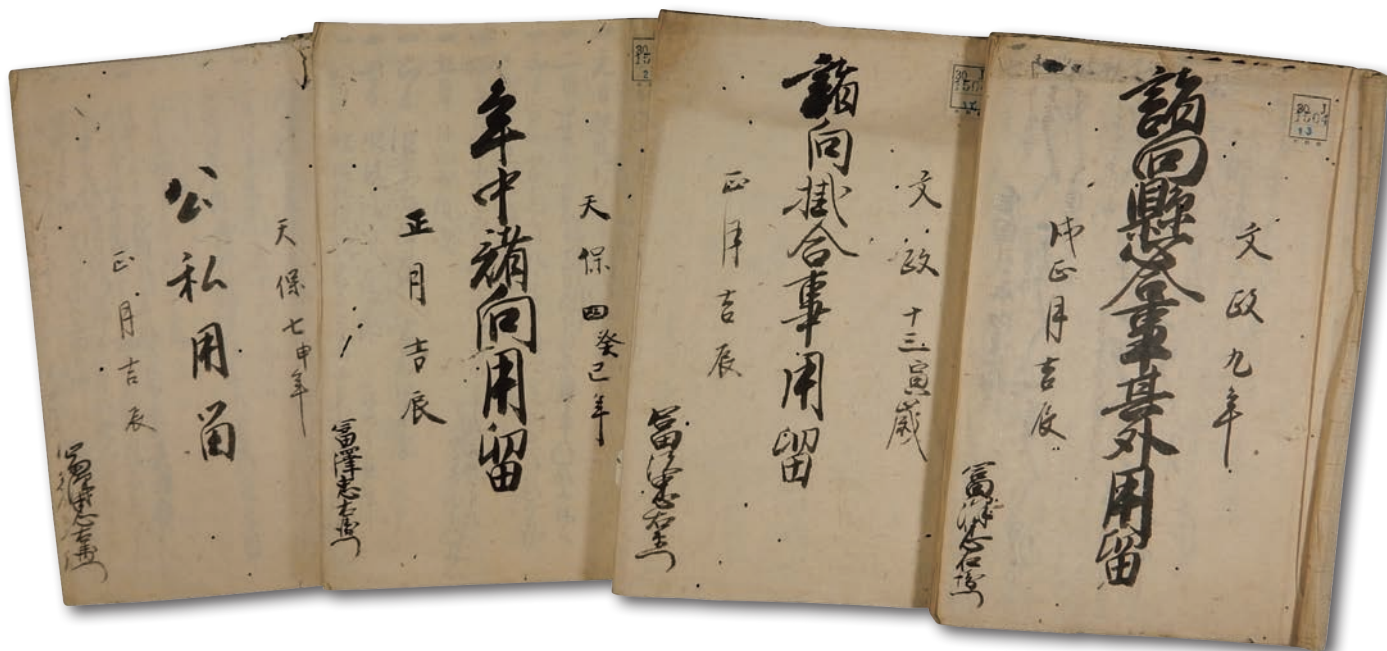 文政九年
諸向懸合事其外用留
戌正月吉辰
冨澤忠右衛門
文政十三寅歳
諸向掛合事用留
正月吉辰
冨澤忠右衛門
天保四癸巳年
年中諸向用留
正月吉辰
冨澤忠右衛門
天保七申年
公私用留
正月吉辰
冨澤忠右衛門